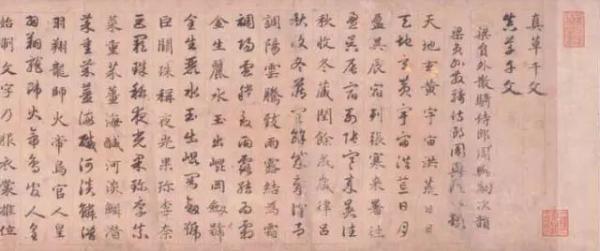 真草千文
真草千文
梁員外散騎侍郎周興嗣次韻
梁員外散騎侍郎周興嗣次韻
天地玄黃宇宙洪荒日月
天地玄黃宇宙洪荒日月
盈昃辰宿列張寒来暑往
盈昃辰宿列張寒来暑往
秋收冬藏閏餘成歲律呂
秋收冬藏閏餘成歲律呂
調陽雲騰致雨露結為霜
調陽雲騰致雨露結為霜
金生麗水玉出崐岡劒號
金生麗水玉出崐岡劒號
巨闕珠稱夜光果珎李柰
巨闕珠稱夜光果珎李柰
菜重芥薑海鹹河淡鱗潛
菜重芥薑海鹹河淡鱗潛
羽翔龍師火帝鳥官人皇
羽翔龍師火帝鳥官人皇
始制文字乃服衣裳推位